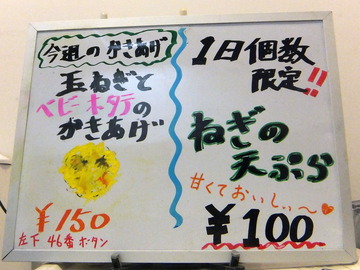 今週のかきあげ
玉ねぎと
ベビーホタテの
かきあげ
¥150
左下 46番ボタン
1日個数
限定!!
ねぎの
天ぷら
甘くておいしい〜♡
¥100